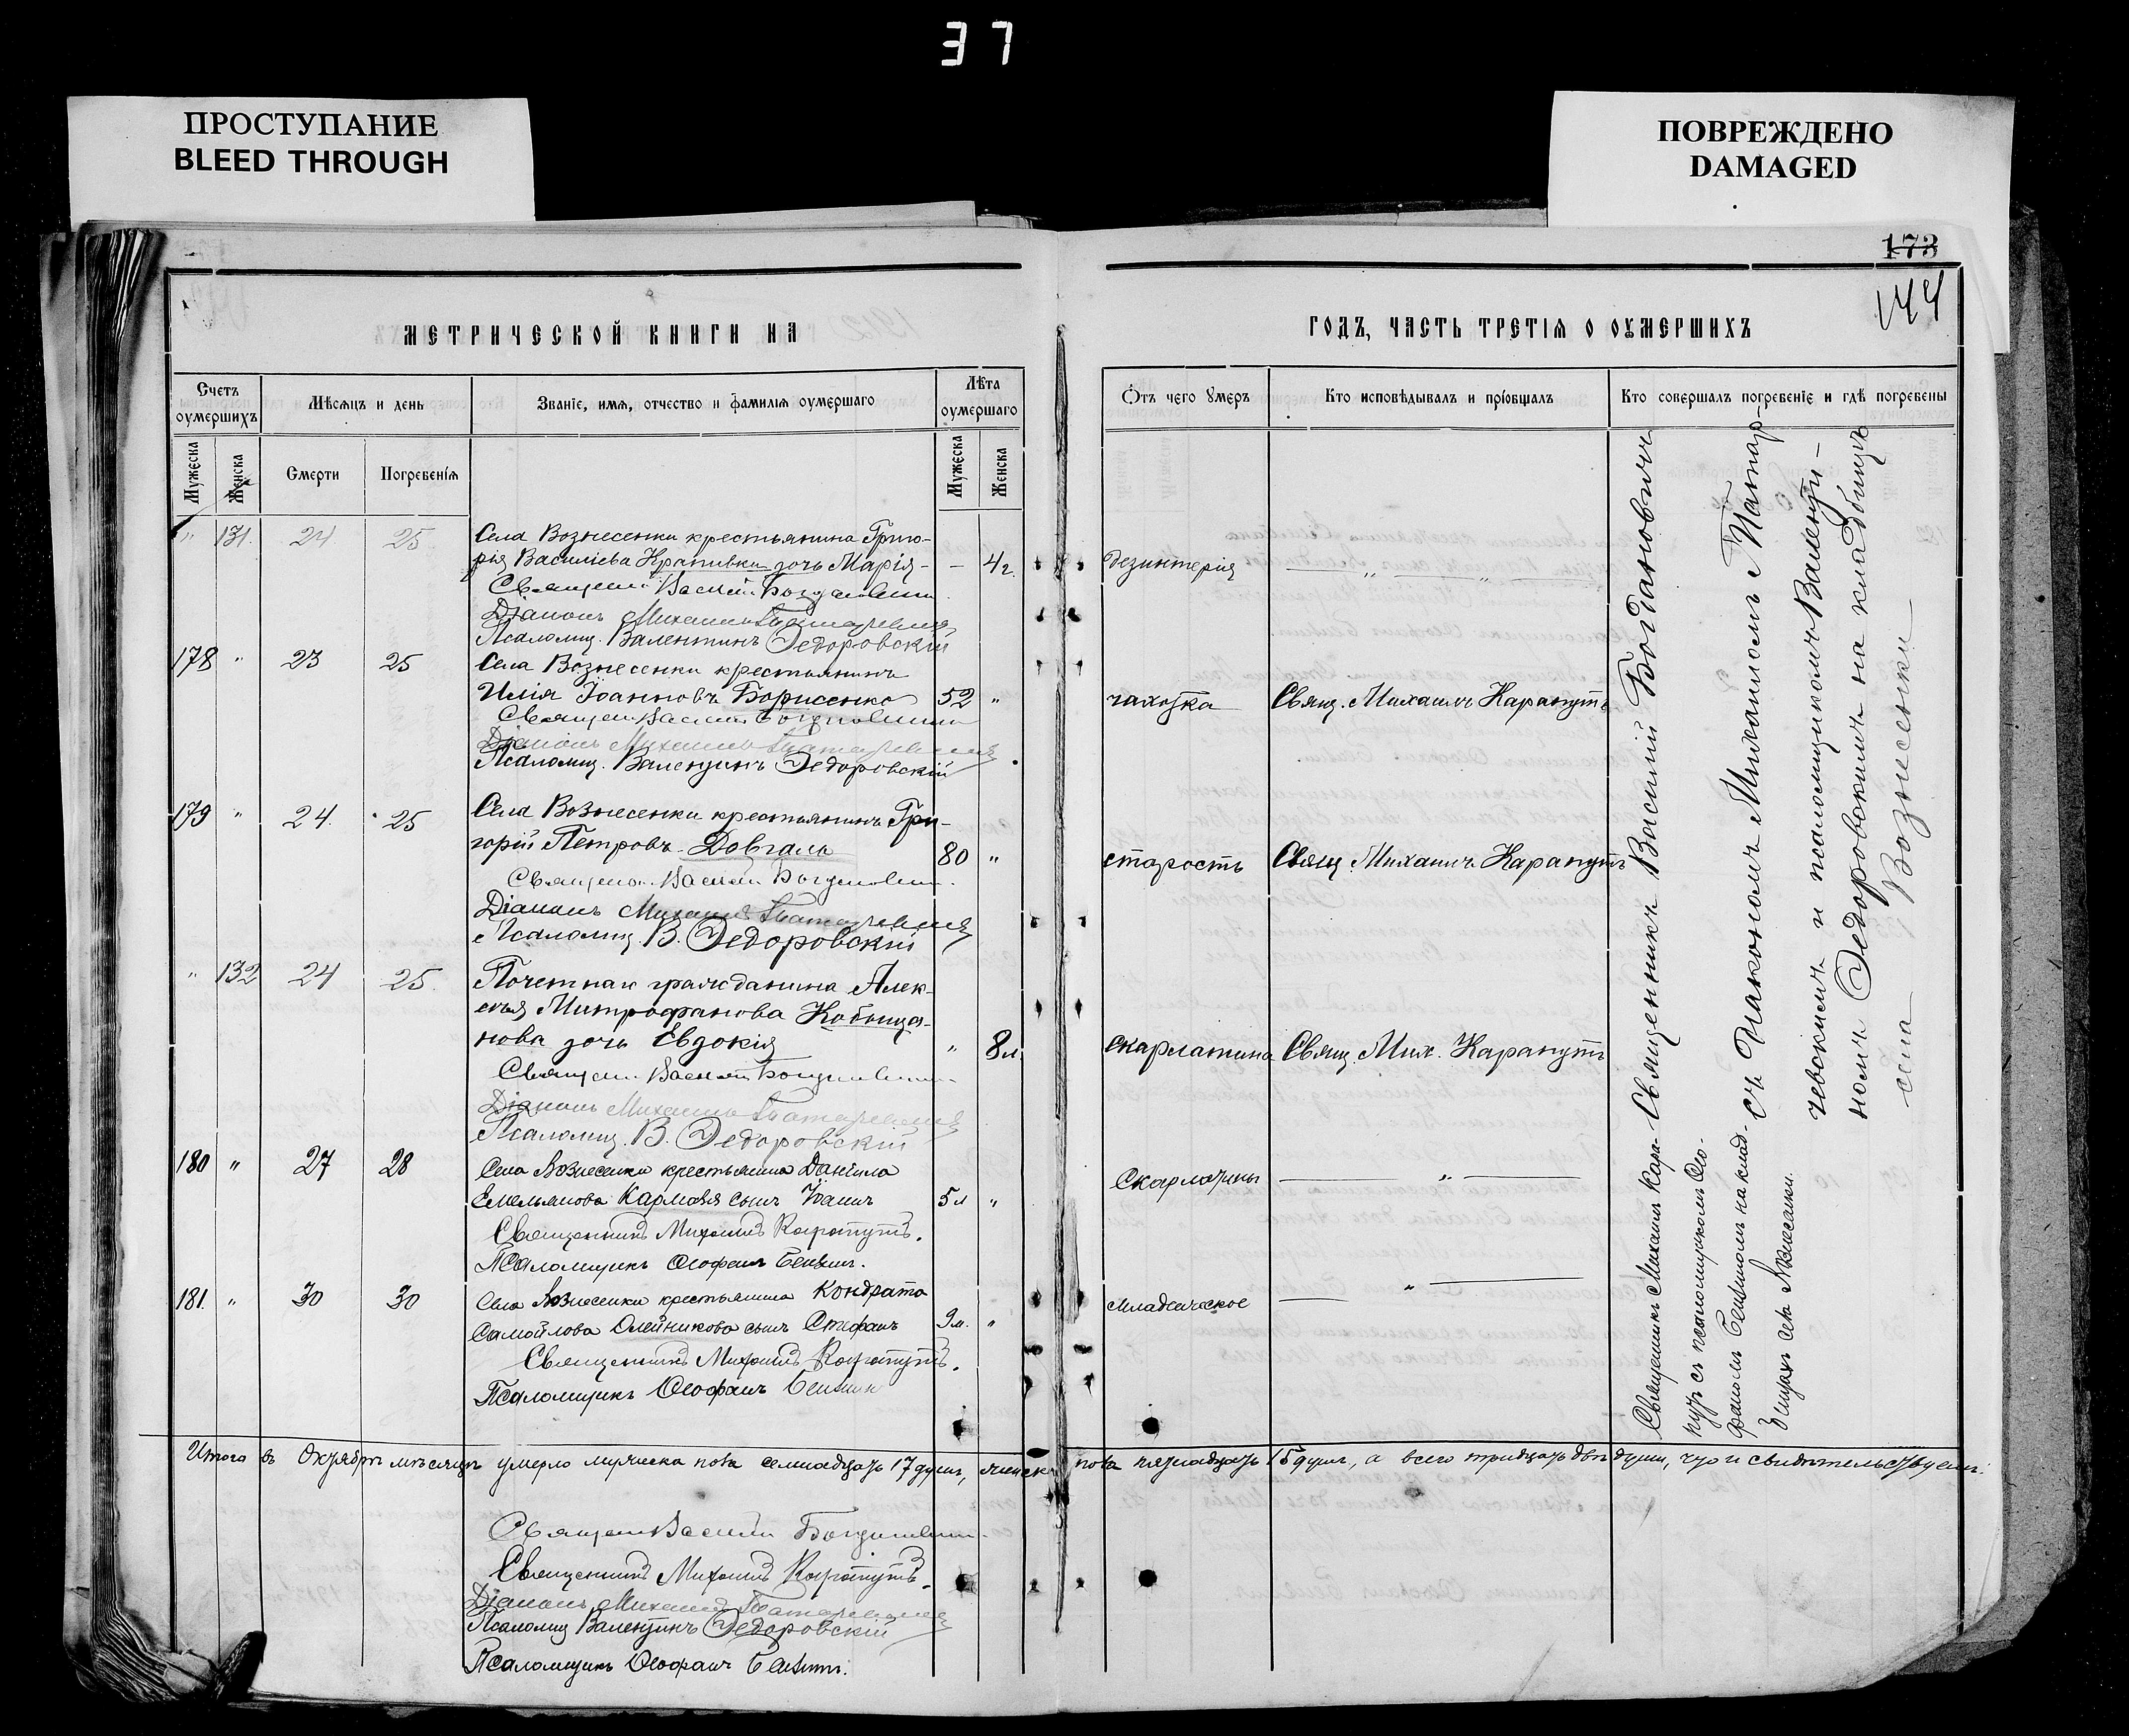 37
ПРОСТУПАНИЕ
BLEED THROUGH
ПОВРЕЖДЕНО
DAMAGED
173
144
МЕТРИЧЕСКОЙ КНИГИ НА
ГОДЪ, ЧАСТЬ ТРЕТІЯ О ОУМЕРШИХЪ
Счетъ оумершихъ
Мѣсяцъ и день
Званіе, имя, отчество и фамилія оумершаго
Лѣта оумершаго
Отъ чего умеръ
Кто исповѣдывалъ и пріобщалъ
Кто совершалъ погребеніе и гдѣ погребены
Мужеска
Женска
Смерти
Погребенія
Мужеска
Женска
" 131. 24 25 Села Вознесенки крестьянина Григо-
рія Василіева Крапивки дочь Марія - - 4 г. дезинтерія — " — " —
Священ. Василій Богдановичъ
Діаконъ Михаилъ Татаревскій
Псаломщ. Валентинъ Федоровскій
178 " 23 25 Села Вознесенки крестьянинъ
Илія Іоанновъ Борисенко 52 " чахотка Свящ. Михаилъ Карапутъ
Священ. Василій Богдановичъ
Діаконъ Михаилъ Татаревскій
Псаломщ. Валентинъ Федоровскій
179 " 24. 25 Села Вознесенки крестьянинъ Гри-
горій Петровъ Довгаль 80 " старость Свящ. Михаилъ Карапутъ
Священ. Василій Богдановичъ
Діаконъ Михаилъ Татаревскій
Псаломщ. В. Федоровскій
" 132 24 25. Почетнаго гражданина Алек-
сѣя Митрофанова Кобыща-
нова дочь Евдокія " 8 л. скарлатина Свящ. Мих. Карапутъ
Священ. Василій Богдановичъ
Діаконъ Михаилъ Татаревскій
Псаломщ. В. Федоровскій
180 " 27 28 Села Вознесенки крестьянина Даніила
Емельянова сынъ Іоаннъ 5 л " Скарлатины — " —
Священникъ Михаилъ Карапутъ.
Псаломщикъ Ѳеофанъ
181. " 30 30 Села Вознесенки крестьянина Кондрата
Самойлова Олейникова сынъ Стефанъ 9 м. " младенческое — " —
Священникъ Михаилъ Карапутъ.
Псаломщикъ Ѳеофанъ
Священникъ Василій Богдановичъ
съ Діакономъ Михаиломъ Татар-
чевскимъ и псаломщикомъ Валенти-
номъ Федоровскимъ на кладбищѣ
села Вознесенки
Священникъ Михаилъ Кара-
путъ съ псаломщикомъ Ѳео-
фаномъ на клад-
бищѣ села Вознесенки.
Итого въ Октябрѣ мѣсяцѣ умерло мужеска пола семнадцать 17 душъ, женска пола пятнадцать 15 душъ, а всего тридцать двѣ души, что и свидѣтельствуемъ:
Священ. Василій Богдановичъ
Священникъ Михаилъ Карапутъ.
Діаконъ Михаилъ Татаревскій
Псаломщ Валентинъ Федоровскій
Псаломщикъ Ѳеофанъ